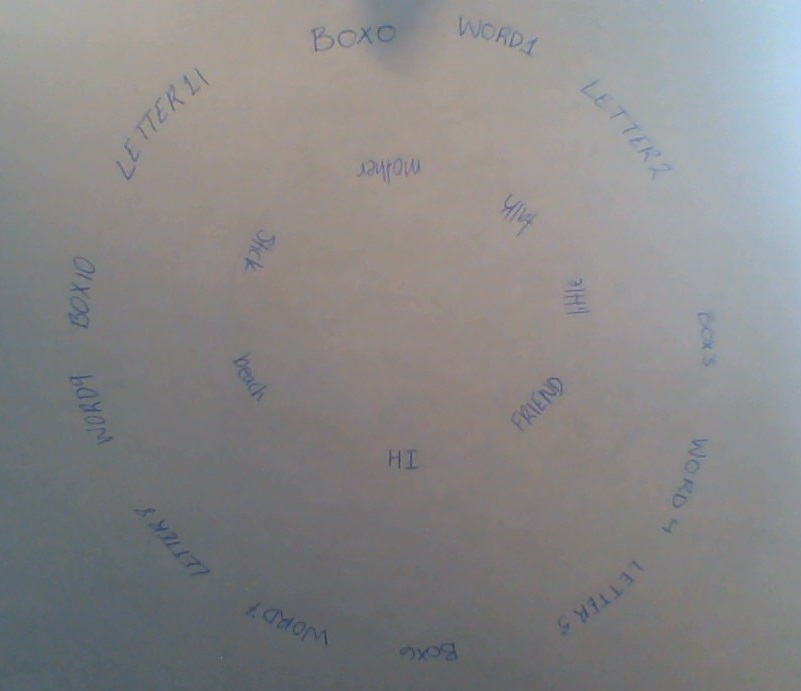 BOX0
WORD1
LETTER2
BOX3
WORD4
LETTER5
BOX6
WORD7
LETTER8
WORD9
BOX10
LETTER11
mother
FRIEND
HI
beach